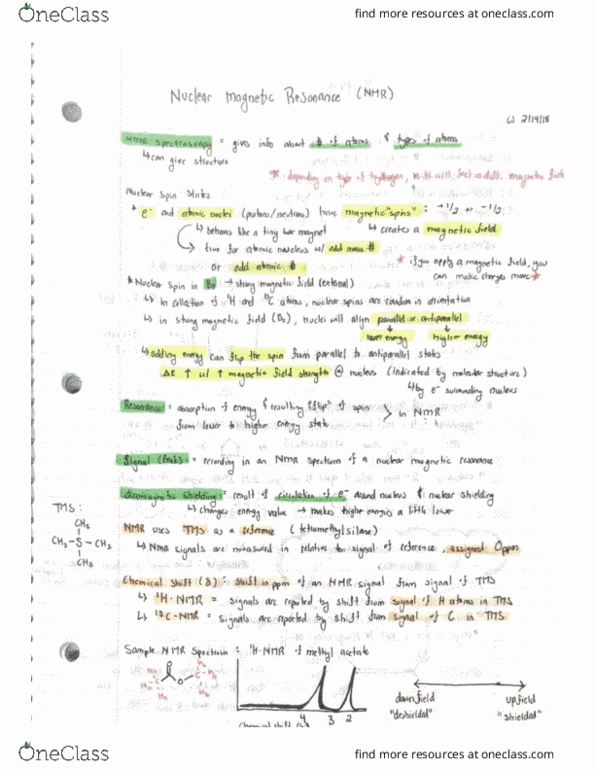 OneClass
find more resources at oneclass.com
Nuclear Magnetic Resonance (NMR)
2/14/18
NMR Spectroscopy = gives info about # of atoms & types of atoms
↳ can give structure
* depending on type of hydrogen, magnetic field
Nuclear Spin States
* e⁻ and atomic nuclei (protons/neutrons) have magnetic "spins" : +1/2 or -1/2
↳ behaves like a tiny bar magnet ↳ creates a magnetic field
true for atomic nucleus w/ odd mass #
or odd atomic #
* if you apply a magnetic field, you
can make charges move *
* Nuclear Spin in B₀ → strong magnetic field (external)
↳ In collection of ¹H and ¹³C atoms, nuclear spins are random in orientation
↳ in strong magnetic field (B₀), nuclei will align parallel or antiparallel
lower energy higher energy
↳ adding energy can flip the spin from parallel to antiparallel states
ΔE ↑ w/ ↑ magnetic field strength @ nucleus (indicated by molecular structure)
↳ by e⁻ surrounding nucleus
Resonance = absorption of energy & resulting "flip" of spin
from lower to higher energy state > in NMR
Signal (Peak) = recording in an NMR spectrum of a nuclear magnetic resonance
Diamagnetic Shielding = result of circulation of e⁻ around nucleus & nuclear shielding
↳ changes energy value → makes higher energies a little lower
TMS:
CH₃
CH₃-S-CH₃
CH₃
NMR uses TMS as a reference (tetramethylsilane)
↳ NMR signals are measured in relative to signal of reference, assigned 0ppm
Chemical Shift (δ) : shift in ppm of an NMR signal from signal of TMS
↳ ¹H-NMR = signals are reported by shift from signal of H atoms in TMS
↳ ¹³C-NMR = signals are reported by shift from signal of C in TMS
Sample NMR Spectrum : ¹H-NMR of methyl acetate
O
O
4 3 2
Chemical shift
downfield upfield
"deshielded" "shielded"
OneClass
find more resources at oneclass.com